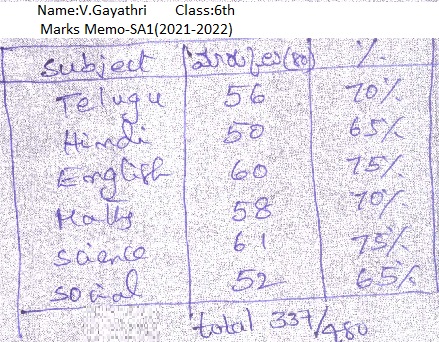 Name:V.Gayathri Class:6th
Marks Memo-SA1(2021-2022)
Subject (80) %
Telugu 56 70%
Hindi 50 65%
English 60 75%
Maths 58 70%
Science 61 75%
Social 52 65%
total 337/480